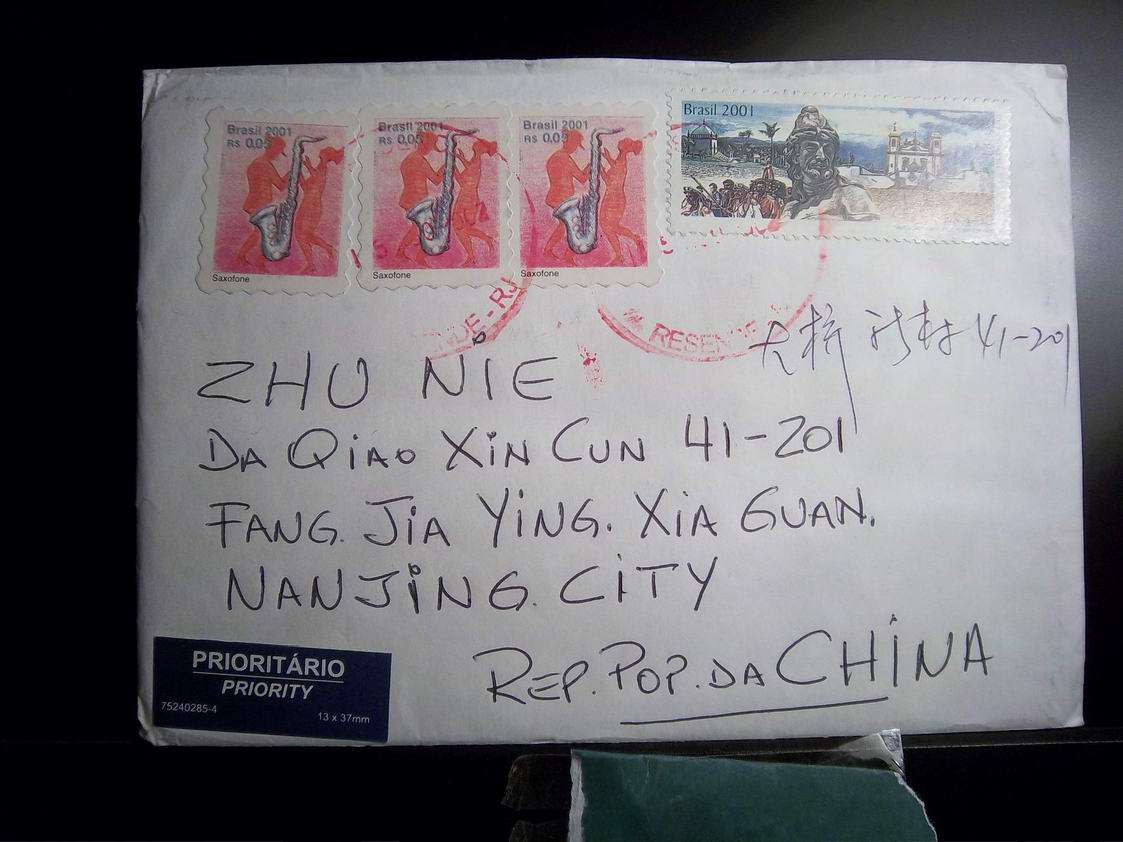 Brasil 2001
R$ 0,05
Saxofone
Brasil 2001
R$ 0,05
Saxofone
Brasil 2001
R$ 0,05
Saxofone
Brasil 2001
NDE - RJ
RESENDE
大桥新村 41-201
ZHU NIE
DA QiAO XiN CUN 41-201
FANG. JiA YiNG. XiA GUAN.
NANJiNG. CiTY
REP. POP. DA CHiNA
PRIORITÁRIO
PRIORITY
75240285-4
13 x 37mm